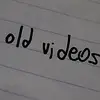 old videos